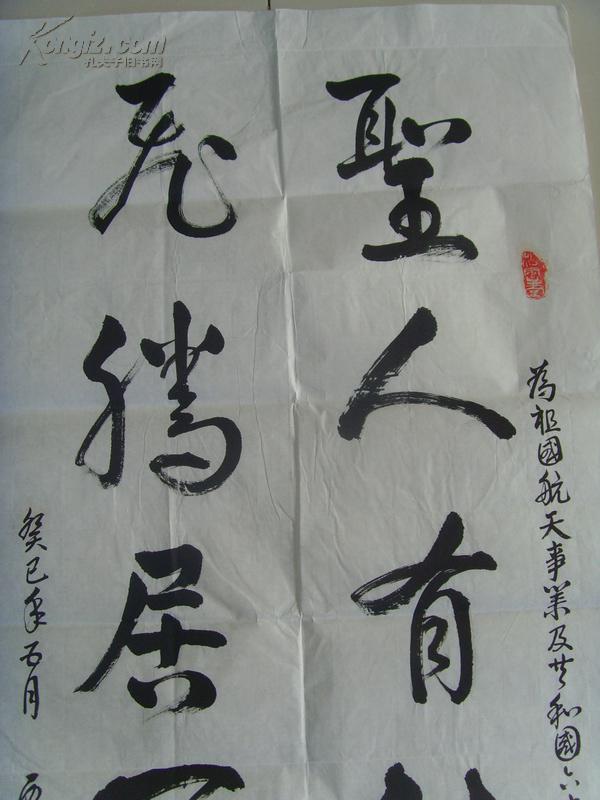 为祖國航天事業及共和國六
聖人有
飛騰居
癸巳年五月
Kongfz.com
孔夫子旧书网